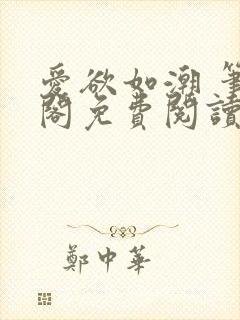 愛欲如潮 筆
閣免費閱讀
鄭中華